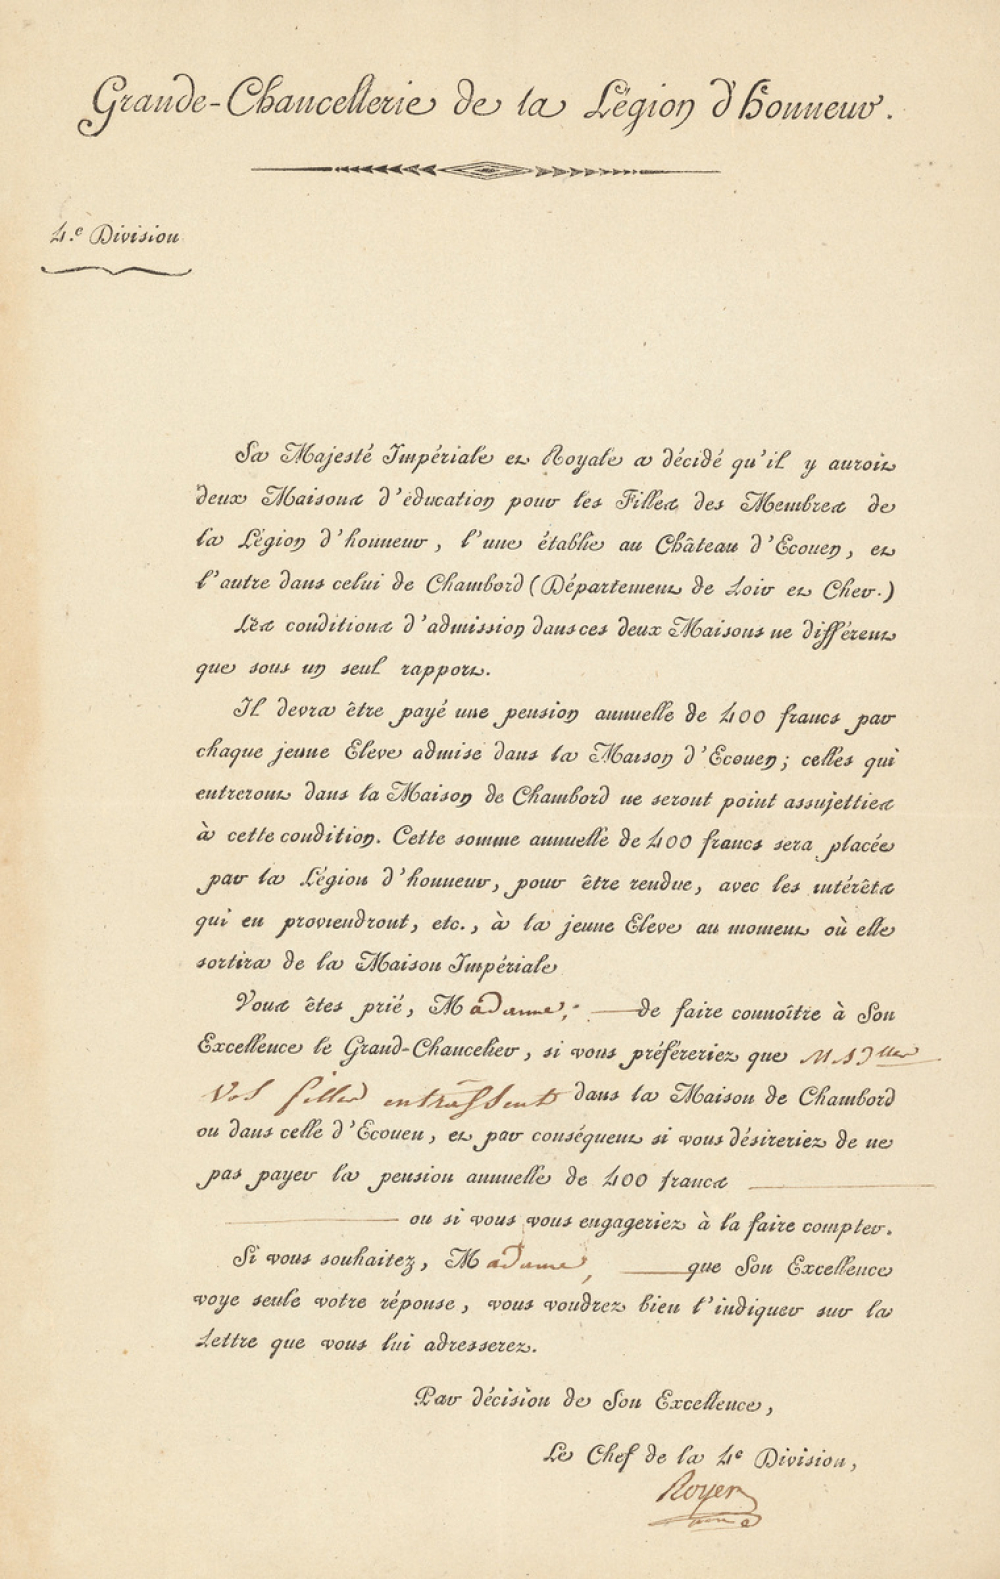 Grande-Chancellerie de la Légion d'honneur.
4.e Division
Sa Majesté Impériale et Royale a décidé qu'il y auroit
deux Maisons d'éducation pour les Filles des Membres de
la Légion d'honneur, l'une établie au Château d'Ecouen, et
l'autre dans celui de Chambord (Département de Loir et Cher.)
Les conditions d'admission dans ces deux Maisons ne différent
que sous un seul rapport.
Il devra être payé une pension annuelle de 400 francs par
chaque jeune Eleve admise dans la Maison d'Ecouen; celles qui
entreront dans la Maison de Chambord ne seront point assujetties
à cette condition. Cette somme annuelle de 400 francs sera placée
par la Légion d'honneur, pour être rendue, avec les intérêts
qui en proviendront, etc., à la jeune Eleve au moment où elle
sortira de la Maison Impériale
Vous êtes prié, Madame, de faire connoître à Son
Excellence le Grand-Chancelier, si vous préféreriez que M.s D.lles
vos filles entrassent dans la Maison de Chambord
ou dans celle d'Ecouen, et par conséquent si vous désireriez de ne
pas payer la pension annuelle de 400 francs
ou si vous vous engageriez à la faire compter.
Si vous souhaitez, Madame, que Son Excellence
voye seule votre réponse, vous voudrez bien l'indiquer sur la
Lettre que vous lui adresserez.
Par décision de Son Excellence,
Le Chef de la 4e Division,
Royer